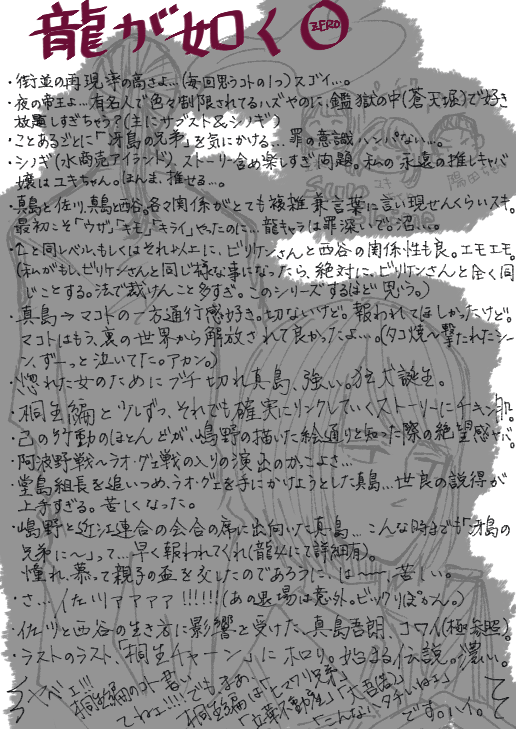 龍が如く
ZERO
・街並の再現率の高さよ…(毎回思うコトの1つ)スゴイ…。
・夜の帝王よ…有名人で色々制限されてるハズやのに、鑑獄の中(蒼天堀)で好き
放題しすぎちゃう?(主にサブスト&シノギ)
・ことあるごとに「冴島の兄弟」を気にかける…罪の意識ハンパない…。
・シノギ(水商売アイランド)、ストーリー含め楽しすぎ問題。私の永遠の推しキャバ
嬢はユキちゃん。ほんま、推せる…。
・真島と佐川、真島と西谷。各々関係がとても複雑 言葉に言い現せんくらいスキ。
最初こそ「ウザ」「キモ」「キライ」やったのに…龍キャラは罪深いで。沼…。
・↑と同レベル、もしくはそれ以上に、ビリケンさんと西谷の関係性も良。エモエモ。
(私がもし、ビリケンさんと同じ様な事になったら、絶対に、ビリケンさんと全く同
じことする。法で裁けんこと多すぎ。このシリーズするほど思う。)
・真島→マコトの一方通行感好き。切ないけど。報われてほしかったけど。
マコトはもう、裏の世界から解放されて良かったよ…。(タコ焼〜撃たれたシー
ン、ずーっと泣いてた。アカン。)
・惚れた女のためにブチ切れ真島、強い。狂犬誕生。
・桐生編と少しずつ、それでも確実にリンクしていくストーリーにチキン肌。
・己の行動のほとんどが、嶋野の描いた絵通りと知った際の絶望感ヤバ。
・阿波野戦〜ラオ・グェ戦の入りの演出のかっこよさ…
・堂島組長を追いつめ、ラオ・グェを手にかけようとした真島…世良の説得が
上手すぎる。苦しくなった。
・嶋野と近江連合の会合の席に出向いた真島…こんな時までも「冴島の
兄弟に〜」って…早く報われてくれ(龍4にて詳細有)。
憧れ、慕って親子の盃を交したのであろうに、は〜、苦しい。
・さ…佐川ァァァァ!!!!!!(あの退場は意外。ビックリぽかん。)
・佐川と西谷の生き方に影響を受けた、真島吾朗、コワイ(極参照)。
・ラストのラスト、「桐生チャーン」にホロリ。始まる伝説。濃い。
ヤベェ!!!
桐生編
てねェ!!!!でもまあ、
桐生編は「ヒマワリ兄弟」
「立華不動産」「大吾」
「こんな
です。ハイ。